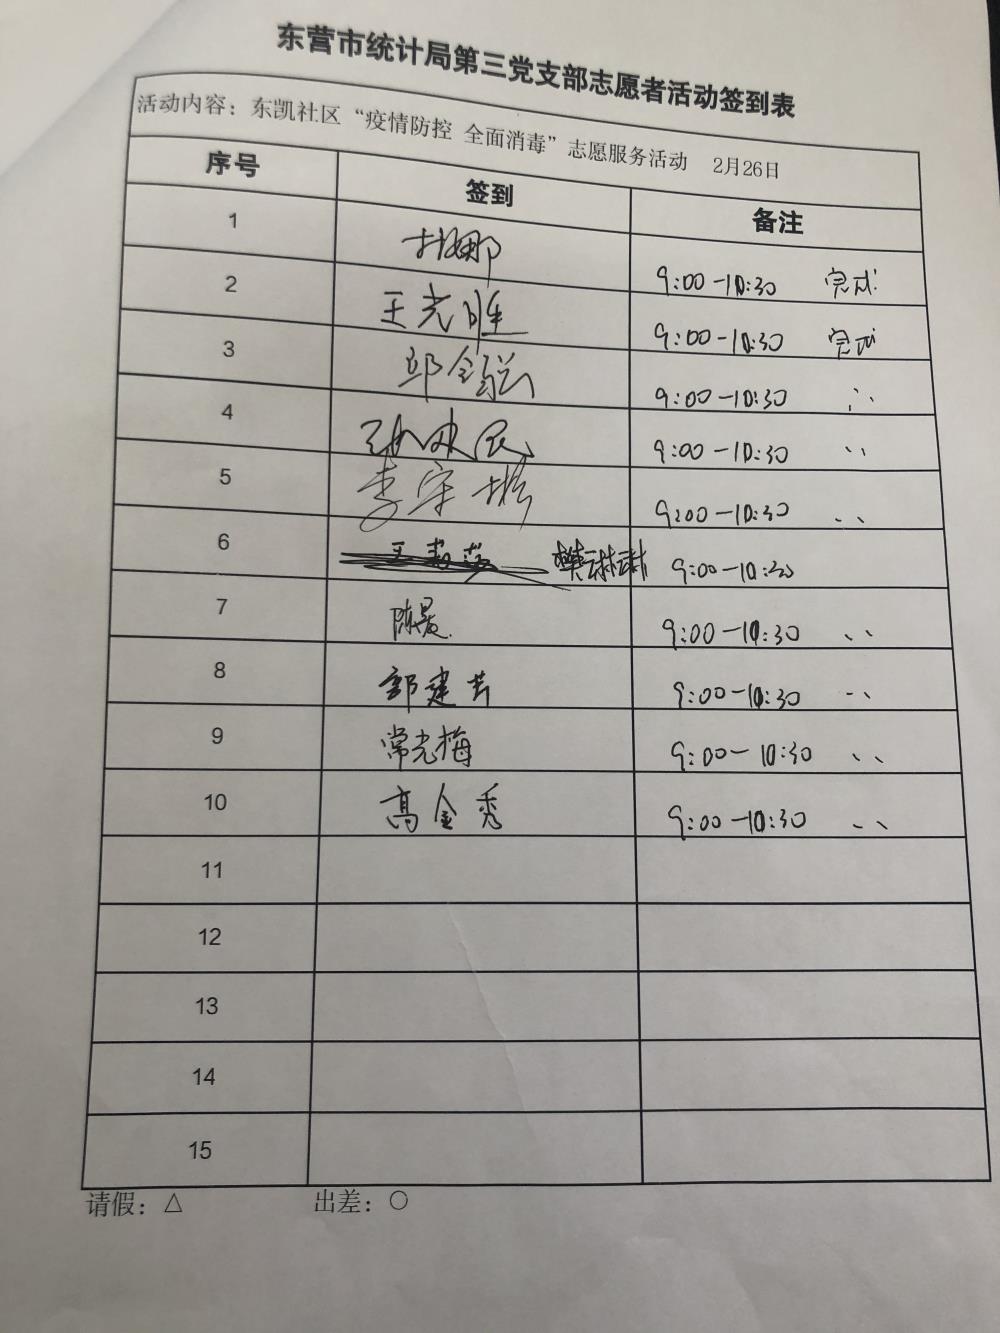 东营市统计局第三党支部志愿者活动签到表
活动内容：东凯社区“疫情防控 全面消毒”志愿服务活动 2月26日
序号 签到 备注
1 杜娜 9:00-10:30 完成
2 王光胜 9:00-10:30 完成
3 9:00-10:30 〃
4 9:00-10:30 〃
5 李宗彬 9:00-10:30 〃
6 樊琳琳 9:00-10:30
7 陈晨 9:00-10:30 〃
8 郭建芳 9:00-10:30 〃
9 常光梅 9:00-10:30 〃
10 高金秀 9:00-10:30 〃
11
12
13
14
15
请假：△ 出差：○